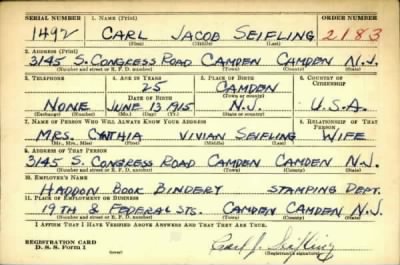 SERIAL NUMBER 1. NAME (Print) ORDER NUMBER
1492 CARL JACOB SEIFLING 2183
(First) (Middle) (Last)
2. ADDRESS (Print)
3145 S. CONGRESS ROAD CAMDEN CAMDEN N.J.
(Number and street or R. F. D. number) (Town) (County) (State)
3. TELEPHONE 4. AGE IN YEARS 5. PLACE OF BIRTH 6. COUNTRY OF CITIZENSHIP
25 CAMDEN
DATE OF BIRTH (Town or county)
NONE JUNE 13 1915 N.J. U.S.A.
(Exchange) (Number) (Mo.) (Day) (Yr.) (State or country)
7. NAME OF PERSON WHO WILL ALWAYS KNOW YOUR ADDRESS 8. RELATIONSHIP OF THAT PERSON
MRS. CYNTHIA VIVIAN SEIFLING WIFE
(Mr., Mrs., Miss) (First) (Middle) (Last)
9. ADDRESS OF THAT PERSON
3145 S. CONGRESS ROAD CAMDEN CAMDEN N.J.
(Number and street or R. F. D. number) (Town) (County) (State)
10. EMPLOYER'S NAME
HADDON BOOK BINDERY STAMPING DEPT.
11. PLACE OF EMPLOYMENT OR BUSINESS
19TH & FEDERAL STS. CAMDEN CAMDEN N.J.
(Number and street or R. F. D. number) (Town) (County) (State)
I AFFIRM THAT I HAVE VERIFIED ABOVE ANSWERS AND THAT THEY ARE TRUE.
REGISTRATION CARD
D. S. S. Form 1 Carl J. Seifling
(Registrant's signature)